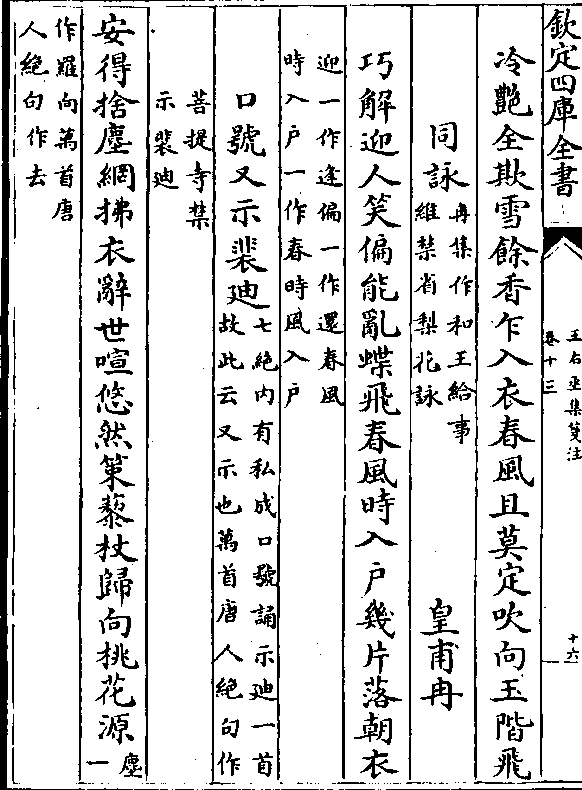 欽定四庫全書
王右丞集箋注
卷十三
十六
冷艷全欺雪餘香乍入衣春風且莫定吹向玉階飛
同詠
冉集作和王給事
維禁省梨花詠
皇甫冉
巧解迎人笑偏能亂蝶飛春風時入戶幾片落朝衣
迎一作逢偏一作還春風
時入戶一作春時風入戶
口號又示裴迪
七絕内有私成口號誦示迪一首
故此云又示也萬首唐人絕句作
菩提寺禁
示裴迪
安得捨塵網拂衣辭世喧悠然策藜杖歸向桃花源
塵
一
作羅向萬首唐
人絕句作去